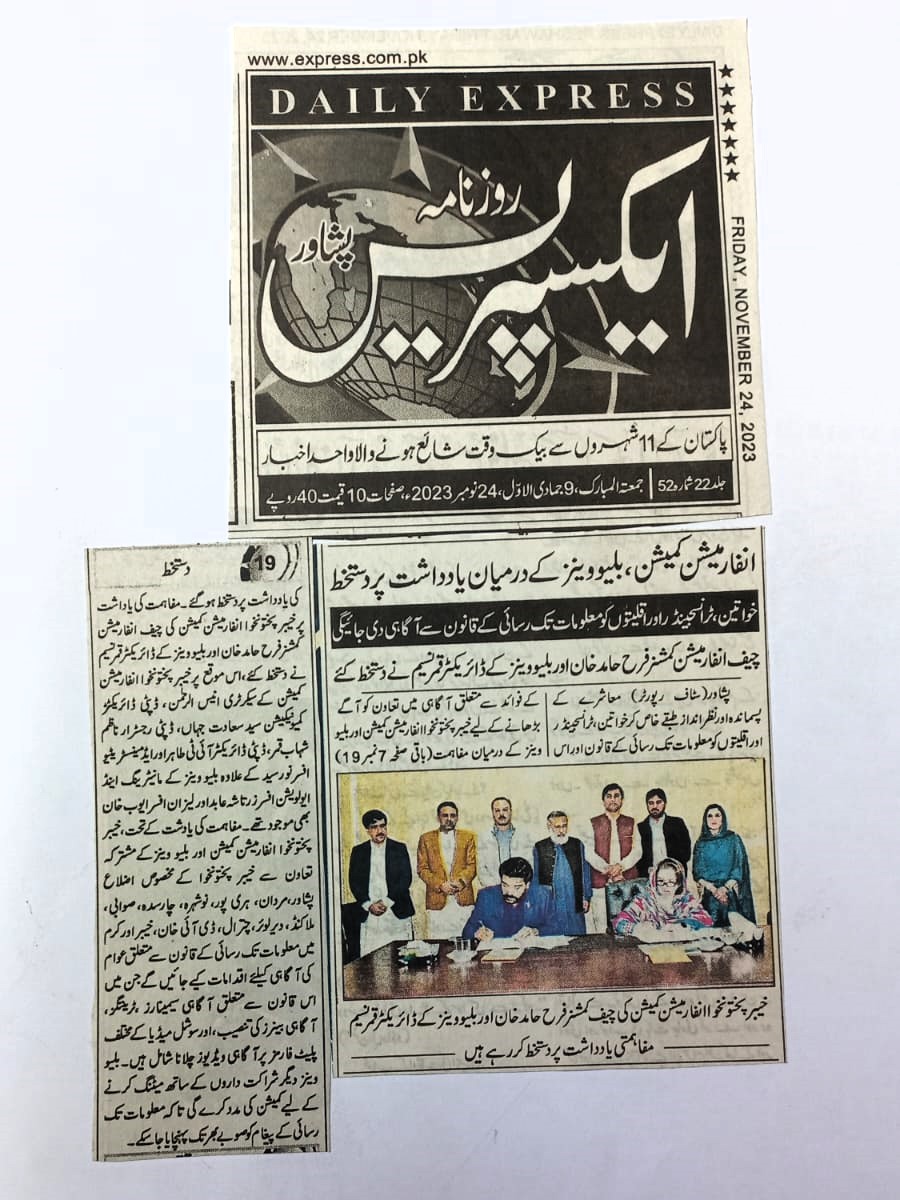 www.express.com.pk
DAILY EXPRESS
روزنامہ
ایکسپریس
پشاور
FRIDAY, NOVEMBER 24, 2023
پاکستان کے 11 شہروں سے بیک وقت شائع ہونے والا واحد اخبار
جلد 22 شمارہ 52 جمعۃ المبارک، 9 جمادی الاوّل، 24 نومبر 2023ء، صفحات 10 قیمت 40 روپے
انفارمیشن کمیشن، بلیو وینز کے درمیان یادداشت پر دستخط
خواتین، ٹرانسجینڈر اور اقلیتوں کو معلومات تک رسائی کے قانون سے آگاہی دی جائیگی
چیف انفارمیشن کمشنر فرح حامد خان اور بلیو وینز کے ڈائریکٹر قمر نسیم نے دستخط کئے
پشاور (سٹاف رپورٹر) معاشرے کے
پسماندہ اور نظر انداز طبقے خاص کر خواتین، ٹرانسجینڈر
اور اقلیتوں کو معلومات تک رسائی کے قانون اور اس
کے فوائد سے متعلق آگاہی میں تعاون کو آگے
بڑھانے کے لیے خیبر پختونخوا انفارمیشن کمیشن اور بلیو
وینز کے درمیان مفاہمت (باقی صفحہ 7 نمبر 19)
خیبر پختونخوا انفارمیشن کمیشن کی چیف کمشنر فرح حامد خان اور بلیو وینز کے ڈائریکٹر قمر نسیم
مفاہمتی یادداشت پر دستخط کر رہے ہیں
19 دستخط
کی یادداشت پر دستخط ہو گئے۔ مفاہمت کی یاداشت
پر خیبر پختونخوا انفارمیشن کمیشن کی چیف انفارمیشن
کمشنر فرح حامد خان اور بلیو وینز کے ڈائریکٹر قمر نسیم
نے دستخط کئے، اس موقع پر خیبر پختونخوا انفارمیشن
کمیشن کے سیکرٹری انیس الرحمن، ڈپٹی ڈائریکٹر
کمیونیکیشن سید سعادت جہاں، ڈپٹی رجسٹرار ناظم
شہاب قمر، ڈپٹی ڈائریکٹر آئی ٹی طاہر اور ایڈمنسٹریٹیو
افسر نور سید کے علاوہ بلیو وینز کے مانیٹرنگ اینڈ
ایولویشن افسر زرتاشہ عابد اور لیزان افسر ایوب خان
بھی موجود تھے۔ مفاہمت کی یادشت کے تحت، خیبر
پختونخوا انفارمیشن کمیشن اور بلیو وینز کے مشترکہ
تعاون سے خیبر پختونخوا کے مخصوص اضلاع
پشاور، مردان، ہری پور، نوشہرہ، چارسدہ، صوابی،
ملاکنڈ، دیر لوئر، چترال، ڈی آئی خان، خیبر اور کرم
میں معلومات تک رسائی کے قانون سے متعلق عوام
کی آگاہی کیلئے اقدامات کیے جائیں گے جن میں
اس قانون سے متعلق آگاہی سیمینارز، ٹریننگز،
آگاہی بینرز کی تنصیب، اور سوشل میڈیا کے مختلف
پلیٹ فارمز پر آگاہی ویڈیوز چلانا شامل ہیں۔ بلیو
وینز دیگر شراکت داروں کے ساتھ میٹنگ کرنے
کے لیے کمیشن کی مدد کرے گی تاکہ معلومات تک
رسائی کے پیغام کو صوبے بھر تک پہنچایا جا سکے۔